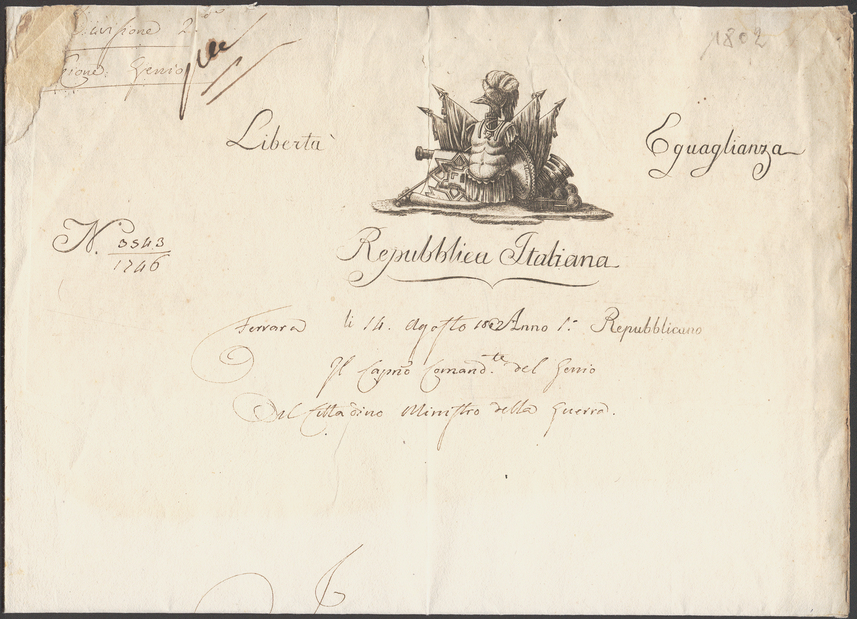 Divisione 2.
zione: Genio
1802
Libertà
Eguaglianza
N. 3543
1746
Repubblica Italiana
Ferrara li 14. Agosto 1802 Anno 1.º Repubblicano
Il Capnõ Comand.te del Genio
Al Cittadino Ministro della Guerra.